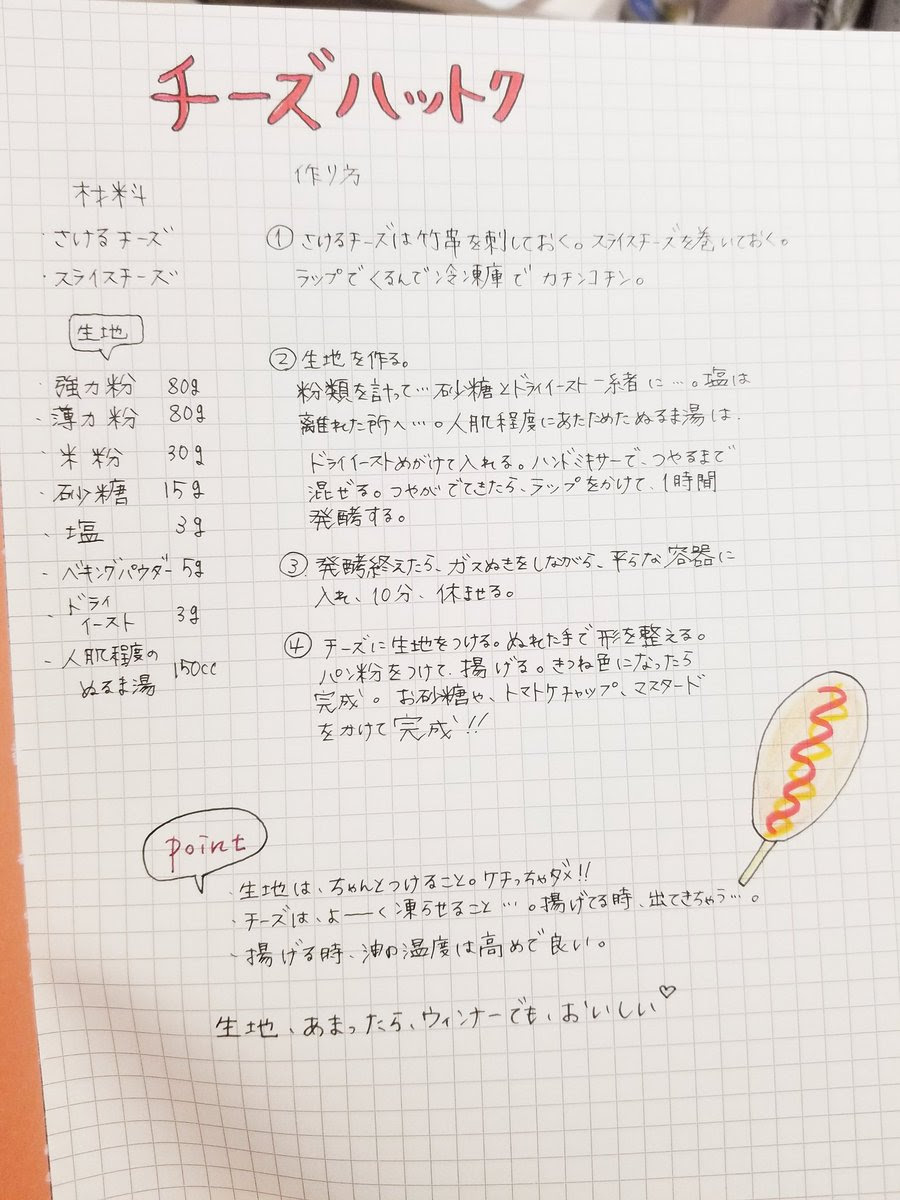 チーズハットク
材料
・さけるチーズ
・スライスチーズ
生地
・強力粉 80g
・薄力粉 80g
・米粉 30g
・砂糖 15g
・塩 3g
・ベキングパウダー 5g
・ドライ
イースト 3g
・人肌程度の
ぬるま湯 150cc
作り方
① さけるチーズは竹串を刺しておく。スライスチーズを巻いておく。
ラップでくるんで冷凍庫でカチンコチン。
② 生地を作る。
粉類を計って…砂糖とドライイースト一緒に…。塩は
離れた所へ…。人肌程度にあたためたぬるま湯は、
ドライイーストめがけて入れる。ハンドミキサーで、つやるまで
混ぜる。つやがでてきたら、ラップをかけて、1時間
発酵する。
③ 発酵終えたら、ガスぬきをしながら、平らな容器に
入れ、10分、休ませる。
④ チーズに生地をつける。ぬれた手で形を整える。
パン粉をつけて、揚げる。きつね色になったら
完成。お砂糖や、トマトケチャップ、マスタード
をかけて完成!!
point
・生地は、ちゃんとつけること。ケチっちゃダメ!!
・チーズは、よーく凍らせること…。揚げてる時、出てきちゃう…。
・揚げる時、油の温度は高めで良い。
生地、あまったら、ウィンナーでも、おいしい♡